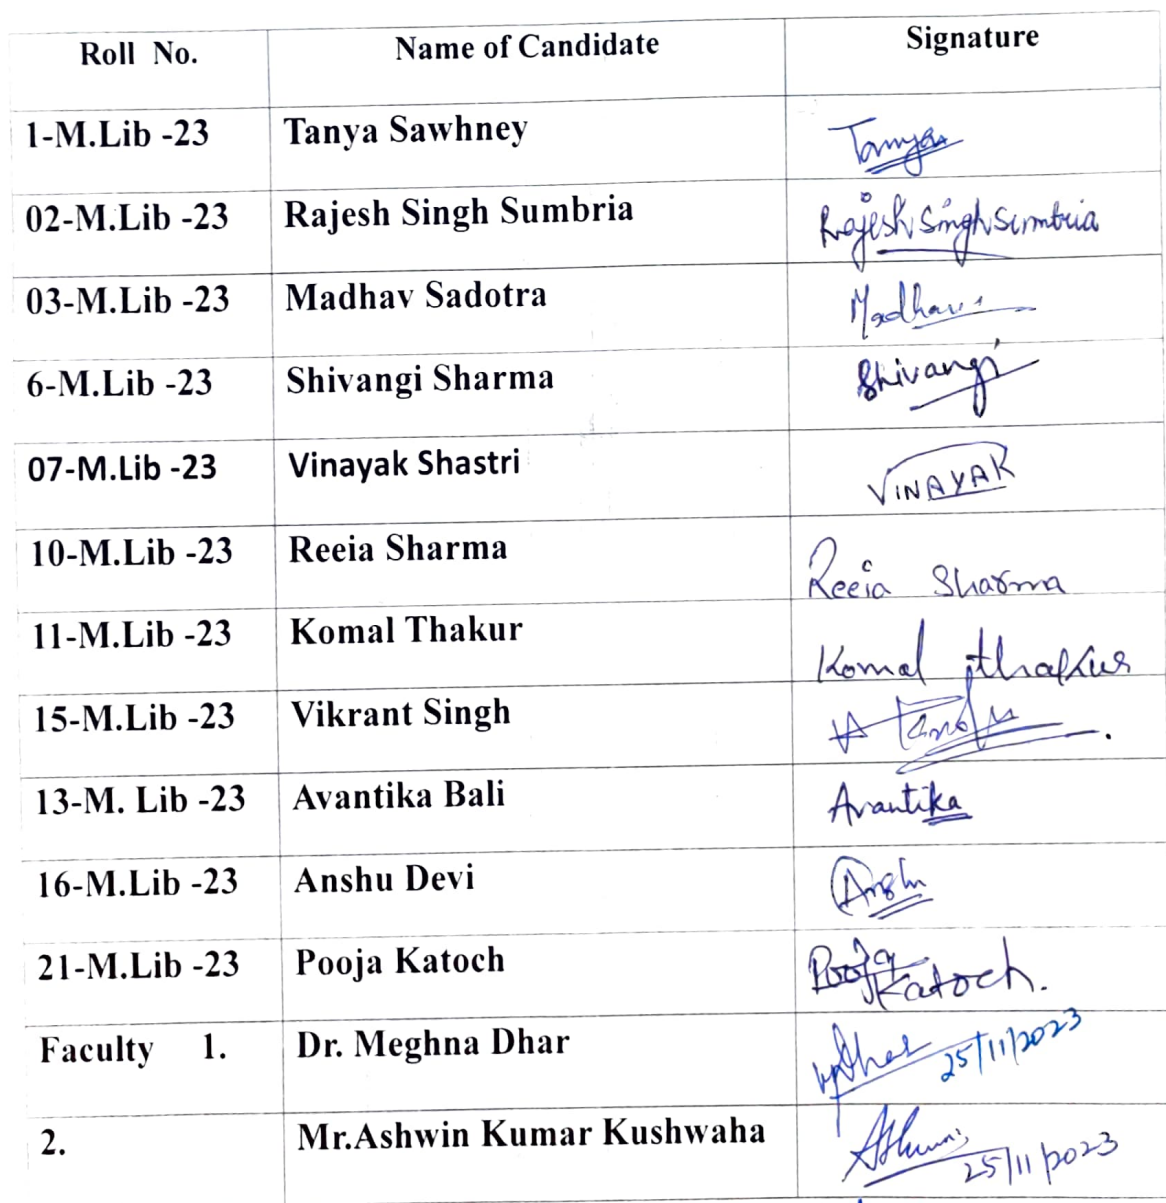 Roll No. Name of Candidate Signature
1-M.Lib -23 Tanya Sawhney Tanya
02-M.Lib -23 Rajesh Singh Sumbria Rajesh Singh Sumbria
03-M.Lib -23 Madhav Sadotra Madhav
6-M.Lib -23 Shivangi Sharma Shivangi
07-M.Lib -23 Vinayak Shastri VINAYAK
10-M.Lib -23 Reeia Sharma Reeia Sharma
11-M.Lib -23 Komal Thakur Komal Thakur
15-M.Lib -23 Vikrant Singh
13-M. Lib -23 Avantika Bali Avantika
16-M.Lib -23 Anshu Devi Anshu
21-M.Lib -23 Pooja Katoch Pooja Katoch.
Faculty 1. Dr. Meghna Dhar 25/11/2023
2. Mr.Ashwin Kumar Kushwaha 25/11/2023